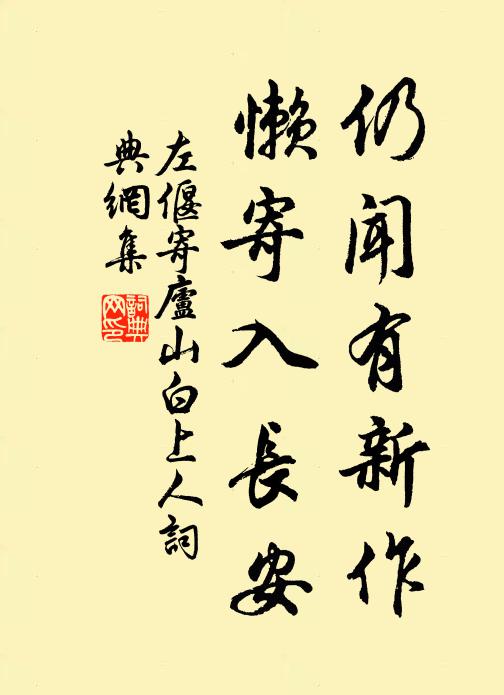 仍聞有新作
懶寄入長安
左偃寄廬山白上人詞
典網集
詞典
网印